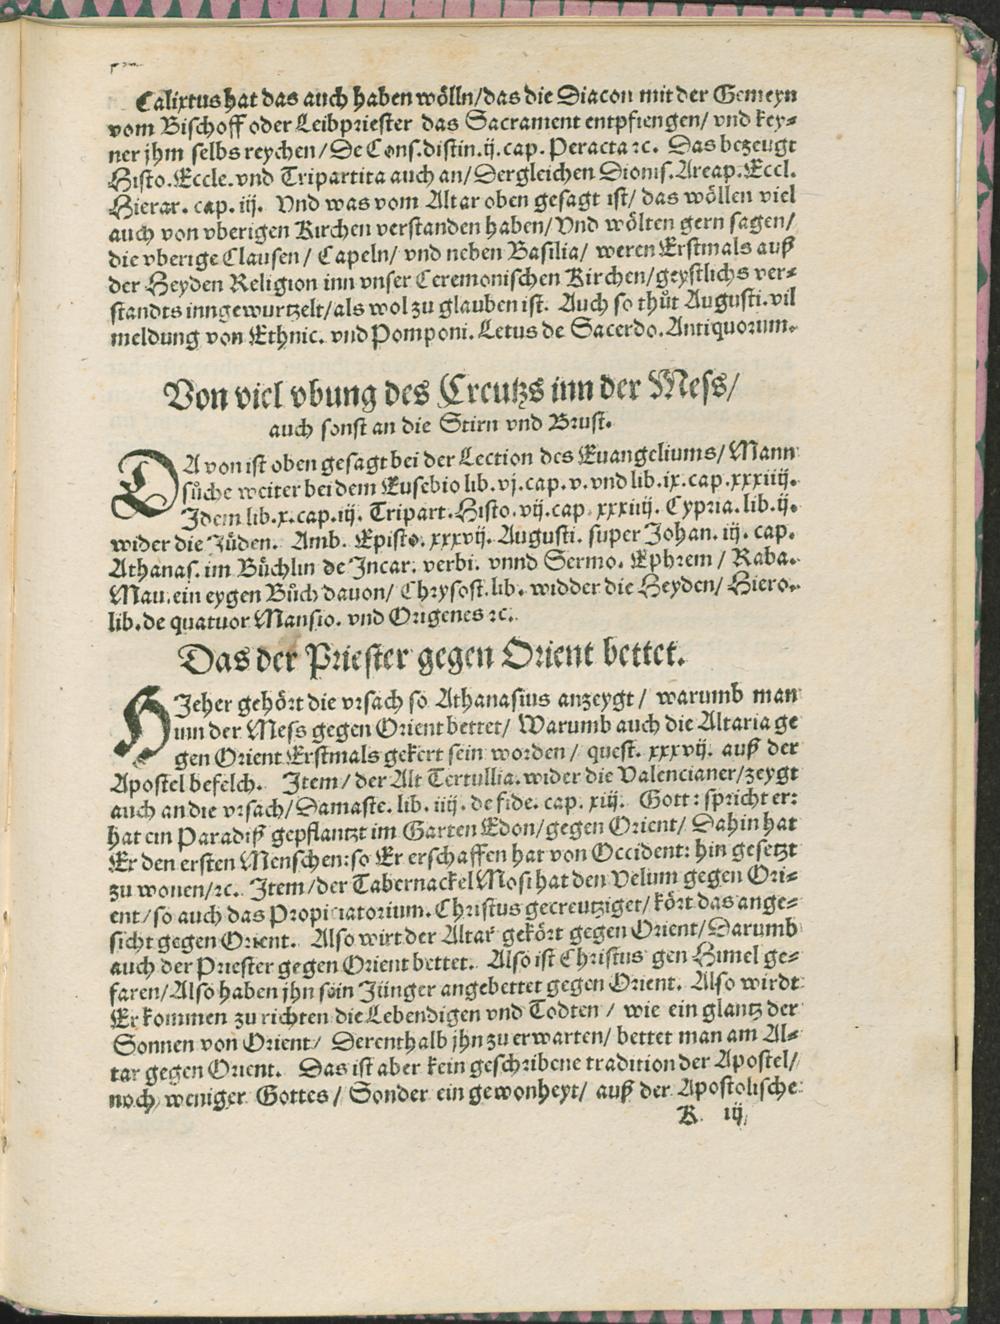 Calixtus hat das auch haben wölln/das die Diacon mit der Gemeyn
vom Bischoff oder Leibpriester das Sacrament entpfiengen/ vnd key⸗
ner jhm selbs reychen/De Cons.distin.ij.cap. Peracta ꝛc. Das bezeugt
Histo.Eccle.vnd Tripartita auch an/Dergleichen Dionis.Areap.Eccl.
Hierar. cap. iij. Vnd was vom Altar oben gesagt ist/ das wöllen viel
auch von vberigen Kirchen verstanden haben/Vnd wölten gern sagen/
die vberige Clausen/ Capeln/ vnd neben Basilia/ weren Erstmals auß
der Heyden Religion inn vnser Ceremonischen Kirchen/geystlichs ver⸗
standts inngewurtzelt/als wol zu glauben ist. Auch so thůt Augusti.vil
meldung von Ethnic. vnd Pomponi. Letus de Sacerdo.Antiquorum.
Von viel vbung des Creutzs inn der Mess/
auch sonst an die Stirn vnd Brust.
DAuon ist oben gesagt bei der Lection des Euangeliums/ Mann
sůche weiter bei dem Eusebio lib.vj.cap.v.vnd lib.ix.cap.xxxiiij.
Idem lib.x.cap.iij. Tripart.Histo.vij.cap.xxxiiij. Cypria.lib.ij.
wider die Jüden. Amb. Episto.xxxvij. Augusti. super Johan. iij. cap.
Athanas. im Bůchlin de Incar. verbi. vnnd Sermo. Ephrem / Raba.
Mau.ein eygen Bůch dauon/ Chrysost.lib. widder die Heyden/ Hiero.
lib.de quatuor Mansio. vnd Origenes ꝛc.
Das der Priester gegen Orient bettet.
HJeher gehört die vrsach so Athanasius anzeygt / warumb man
inn der Mess gegen Orient bettet/ Warumb auch die Altaria ge
gen Orient Erstmals gekert sein worden / quest. xxxvij. auß der
Apostel befelch. Item/ der Alt Tertullia.wider die Valencianer/zeygt
auch an die vrsach/Damaste. lib. iiij. de fide. cap. xiij. Gott: spricht er:
hat ein Paradiß gepflantzt im Garten Edon/gegen Orient/ Dahin hat
Er den ersten Menschen:so Er erschaffen hat von Occident: hin gesetzt
zu wonen/ꝛc. Item/der Tabernackel Mosi hat den Velum gegen Ori⸗
ent/so auch das Propiciatorium. Christus gecreutziget/kört das ange⸗
sicht gegen Orient. Also wirt der Altar gekört gegen Orient/Darumb
auch der Priester gegen Orient bettet. Also ist Christus gen Himel ge⸗
faren/Also haben jhn sein Jünger angebettet gegen Orient. Also wirdt
Er kommen zu richten die Lebendigen vnd Todten / wie ein glantz der
Sonnen von Orient/ Derenthalb jhn zu erwarten/ bettet man am Al⸗
tar gegen Orient. Das ist aber kein geschribene tradition der Apostel/
noch weniger Gottes/ Sonder ein gewonheyt/ auß der Apostolische
K iij